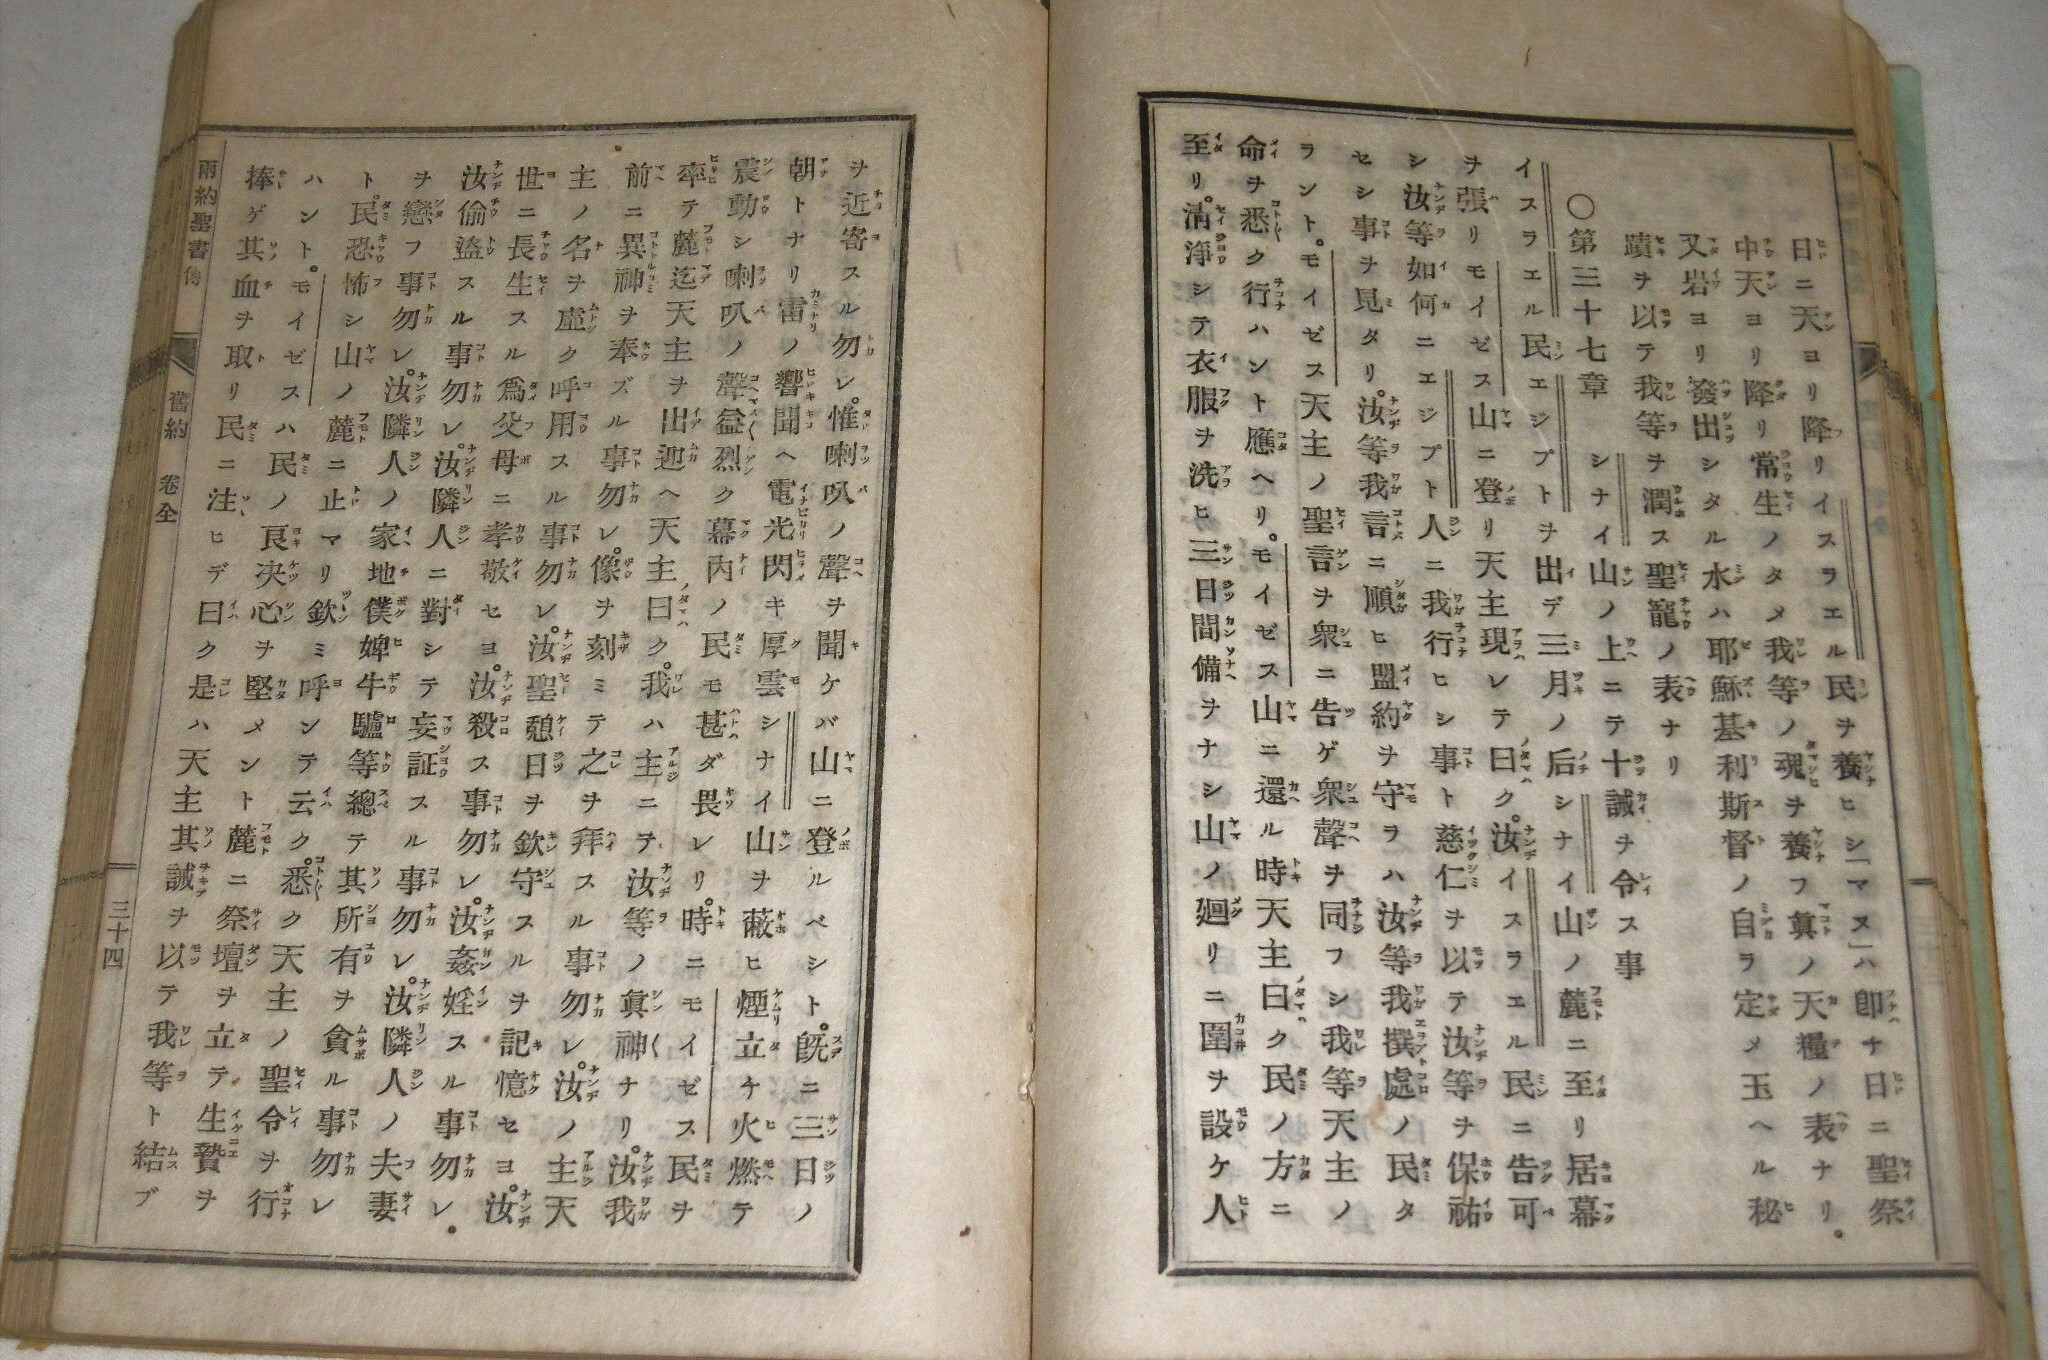 日ニ天ヨリ降リイスラエル民ヲ養ヒシ「マヌ」ハ卽ナ日ニ聖祭
中天ヨリ降リ常生ノタメ我等ノ魂ヲ養フ眞ノ天糧ノ表ナリ。
又岩ヨリ發出シタル水ハ耶穌基利斯督ノ自ラ定メ玉ヘル秘
蹟ヲ以テ我等ヲ潤ス聖寵ノ表ナリ
〇第三十七章 シナイ山ノ上ニテ十誡ヲ令ス事
イスラエル民エジプトヲ出デ三月ノ后シナイ山ノ麓ニ至リ居幕
ヲ張リモイゼス山ニ登リ天主現レテ曰ク。汝イスラエル民ニ告可
シ汝等如何ニエジプト人ニ我行ヒシ事ト慈仁ヲ以テ汝等ヲ保祐
セシ事ヲ見タリ。汝等我言ニ順ヒ盟約ヲ守ラハ汝等我撰處ノ民タ
ラント。モイゼス天主ノ聖言ヲ衆ニ告ゲ衆聲ヲ同フシ我等天主ノ
命ヲ悉ク行ハント應ヘリ。モイゼス山ニ還ル時天主曰ク民ノ方ニ
至リ。淸淨シテ衣服ヲ洗ヒ三日間備ヲナシ山ノ廻リニ圍ヲ設ケ人
ヲ近寄スル勿レ。惟喇叭ノ聲ヲ聞ケバ山ニ登ルベシト。旣ニ三日ノ
朝トナリ雷ノ響聞ヘ電光閃キ厚雲シナイ山ヲ蔽ヒ煙立ナ火燃テ
震動シ喇叭ノ聲益烈ク幕內ノ民モ甚ダ畏レリ。時ニモイゼス民ヲ
率テ麓迄天主ヲ出迎ヘ天主曰ク。我ハ主ニテ汝等ノ眞神ナリ。汝我
前ニ異神ヲ奉ズル事勿レ。像ヲ刻ミテ之ヲ拜スル事勿レ。汝ノ主天
主ノ名ヲ虛ク呼用スル事勿レ。汝聖憩日ヲ欽守スルヲ記憶セヨ。汝
世ニ長生スル爲父母ニ孝敬セヨ。汝殺ス事勿レ。汝姦婬スル事勿レ。
汝偷盜スル事勿レ。汝隣人ニ對シテ妄証スル事勿レ。汝隣人ノ夫妻
ヲ戀フ事勿レ。汝隣人ノ家地僕婢牛驢等總テ其所有ヲ貪ル事勿レ
ト。民恐怖シ山ノ麓ニ止マリ欽ミ呼ンテ云ク。悉ク天主ノ聖令ヲ行
ハント。モイゼスハ民ノ良決心ヲ堅メント麓ニ祭壇ヲ立テ生贄ヲ
捧ゲ其血ヲ取リ民ニ注ヒデ曰ク是ハ天主其誡ヲ以テ我等ト結ブ
兩約聖書傳 舊約 卷全 三十四